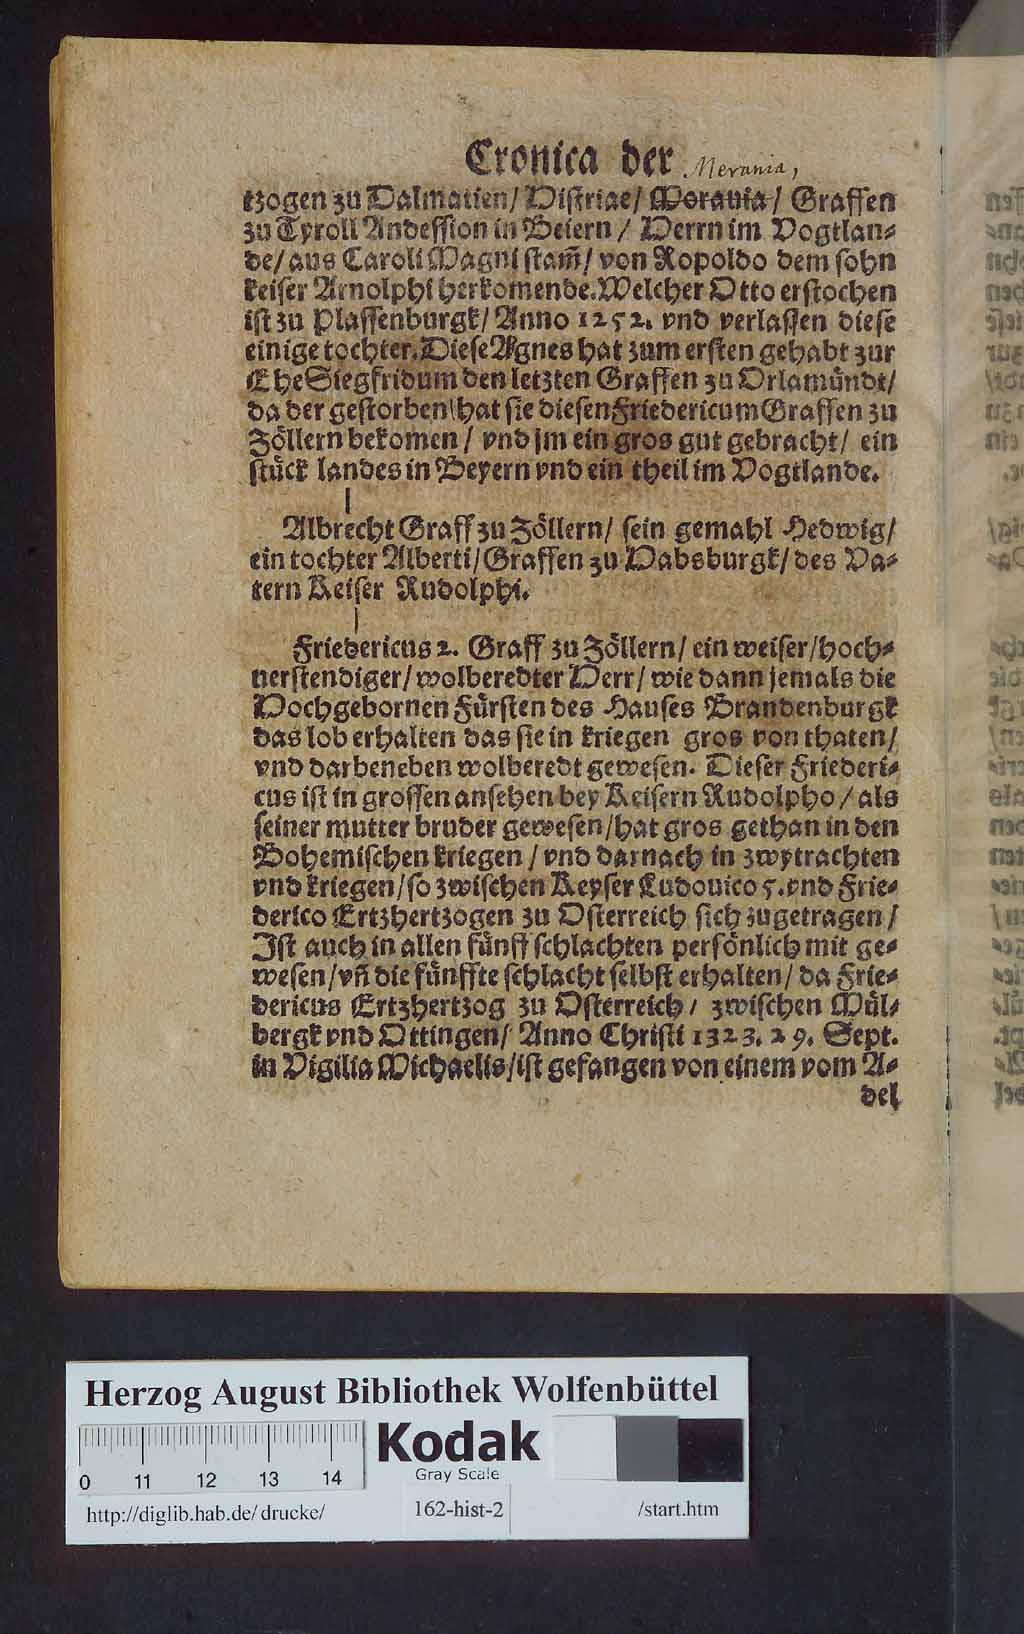 Cronica der Merania,
tzogen zu Dalmatien/ Histriae/ Morauia/ Graffen
zu Tyroll Andession in Beiern/ Herrn im Vogtlan⸗
de/ aus Caroli Magni stam̃/ von Ropoldo dem sohn
keiser Arnolphi herkomende. Welcher Otto erstochen
ist zu Plassenburgk/ Anno 1252. vnd verlassen diese
einige tochter. Diese Agnes hat zum ersten gehabt zur
Ehe Siegfridum den letzten Graffen zu Orlamündt/
da der gestorben/ hat sie diesen Friedericum Graffen zu
Zöllern bekomen/ vnd jm ein gros gut gebracht/ ein
stück landes in Beyern vnd ein theil im Vogtlande.
Albrecht Graff zu Zöllern/ sein gemahl Hedwig/
ein tochter Alberti/ Graffen zu Habsburgk/ des Va⸗
tern Keiser Rudolphi.
Friedericus 2. Graff zu Zöllern/ ein weiser/ hoch⸗
uerstendiger/ wolberedter Herr/ wie dann jemals die
Hochgebornen Fürsten des Hauses Brandenburgk
das lob erhalten das sie in kriegen gros von thaten/
vnd darbeneben wolberedt gewesen. Dieser Friederi⸗
cus ist in grossen ansehen bey Keisern Rudolpho/ als
seiner mutter bruder gewesen/ hat gros gethan in den
Bohemischen kriegen/ vnd darnach in zwytrachten
vnd kriegen/ so zwischen Keyser Ludouico 5. vnd Frie⸗
derico Ertzhertzogen zu Osterreich sich zugetragen/
Ist auch in allen fünff schlachten persönlich mit ge⸗
wesen/ vñ die fünffte schlacht selbst erhalten/ da Frie⸗
dericus Ertzhertzog zu Osterreich/ zwischen Mül⸗
bergk vnd Ottingen/ Anno Christi 1323. 29. Sept.
in Vigilia Michaelis/ ist gefangen von einem vom A⸗
del
Herzog August Bibliothek Wolfenbüttel
Kodak
Gray Scale
0 11 12 13 14
http://diglib.hab.de/drucke/ 162-hist-2 /start.htm